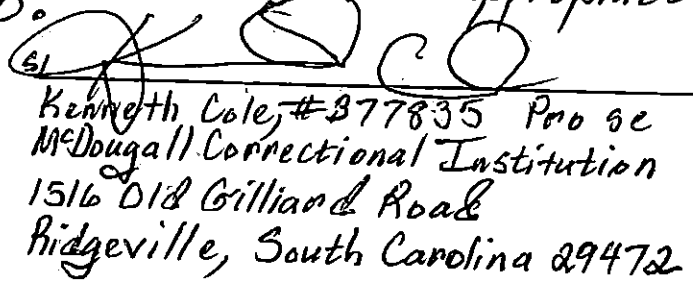 s/
Kenneth Cole, #377835 Pro se
McDougall Correctional Institution
1516 Old Gilliard Road
Ridgeville, South Carolina 29472